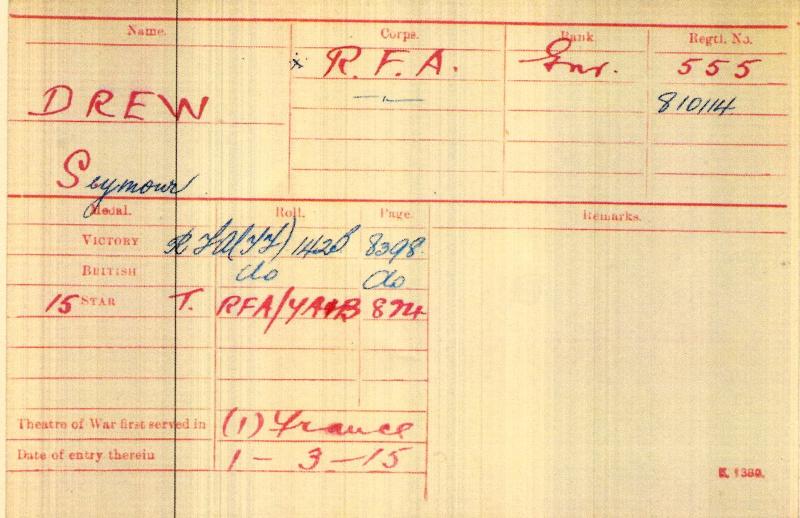 Name. Corps. Rank. Regtl. No.
x R. F. A. Gnr. 555
DREW —"— 810114
Seymour
Medal. Roll. Page. Remarks.
VICTORY RFA(TF) 142B 8398.
BRITISH do do
15 STAR T. RFA/ 874
Theatre of War first served in (1) France
Date of entry therein 1 - 3 - 15
K. 1380.